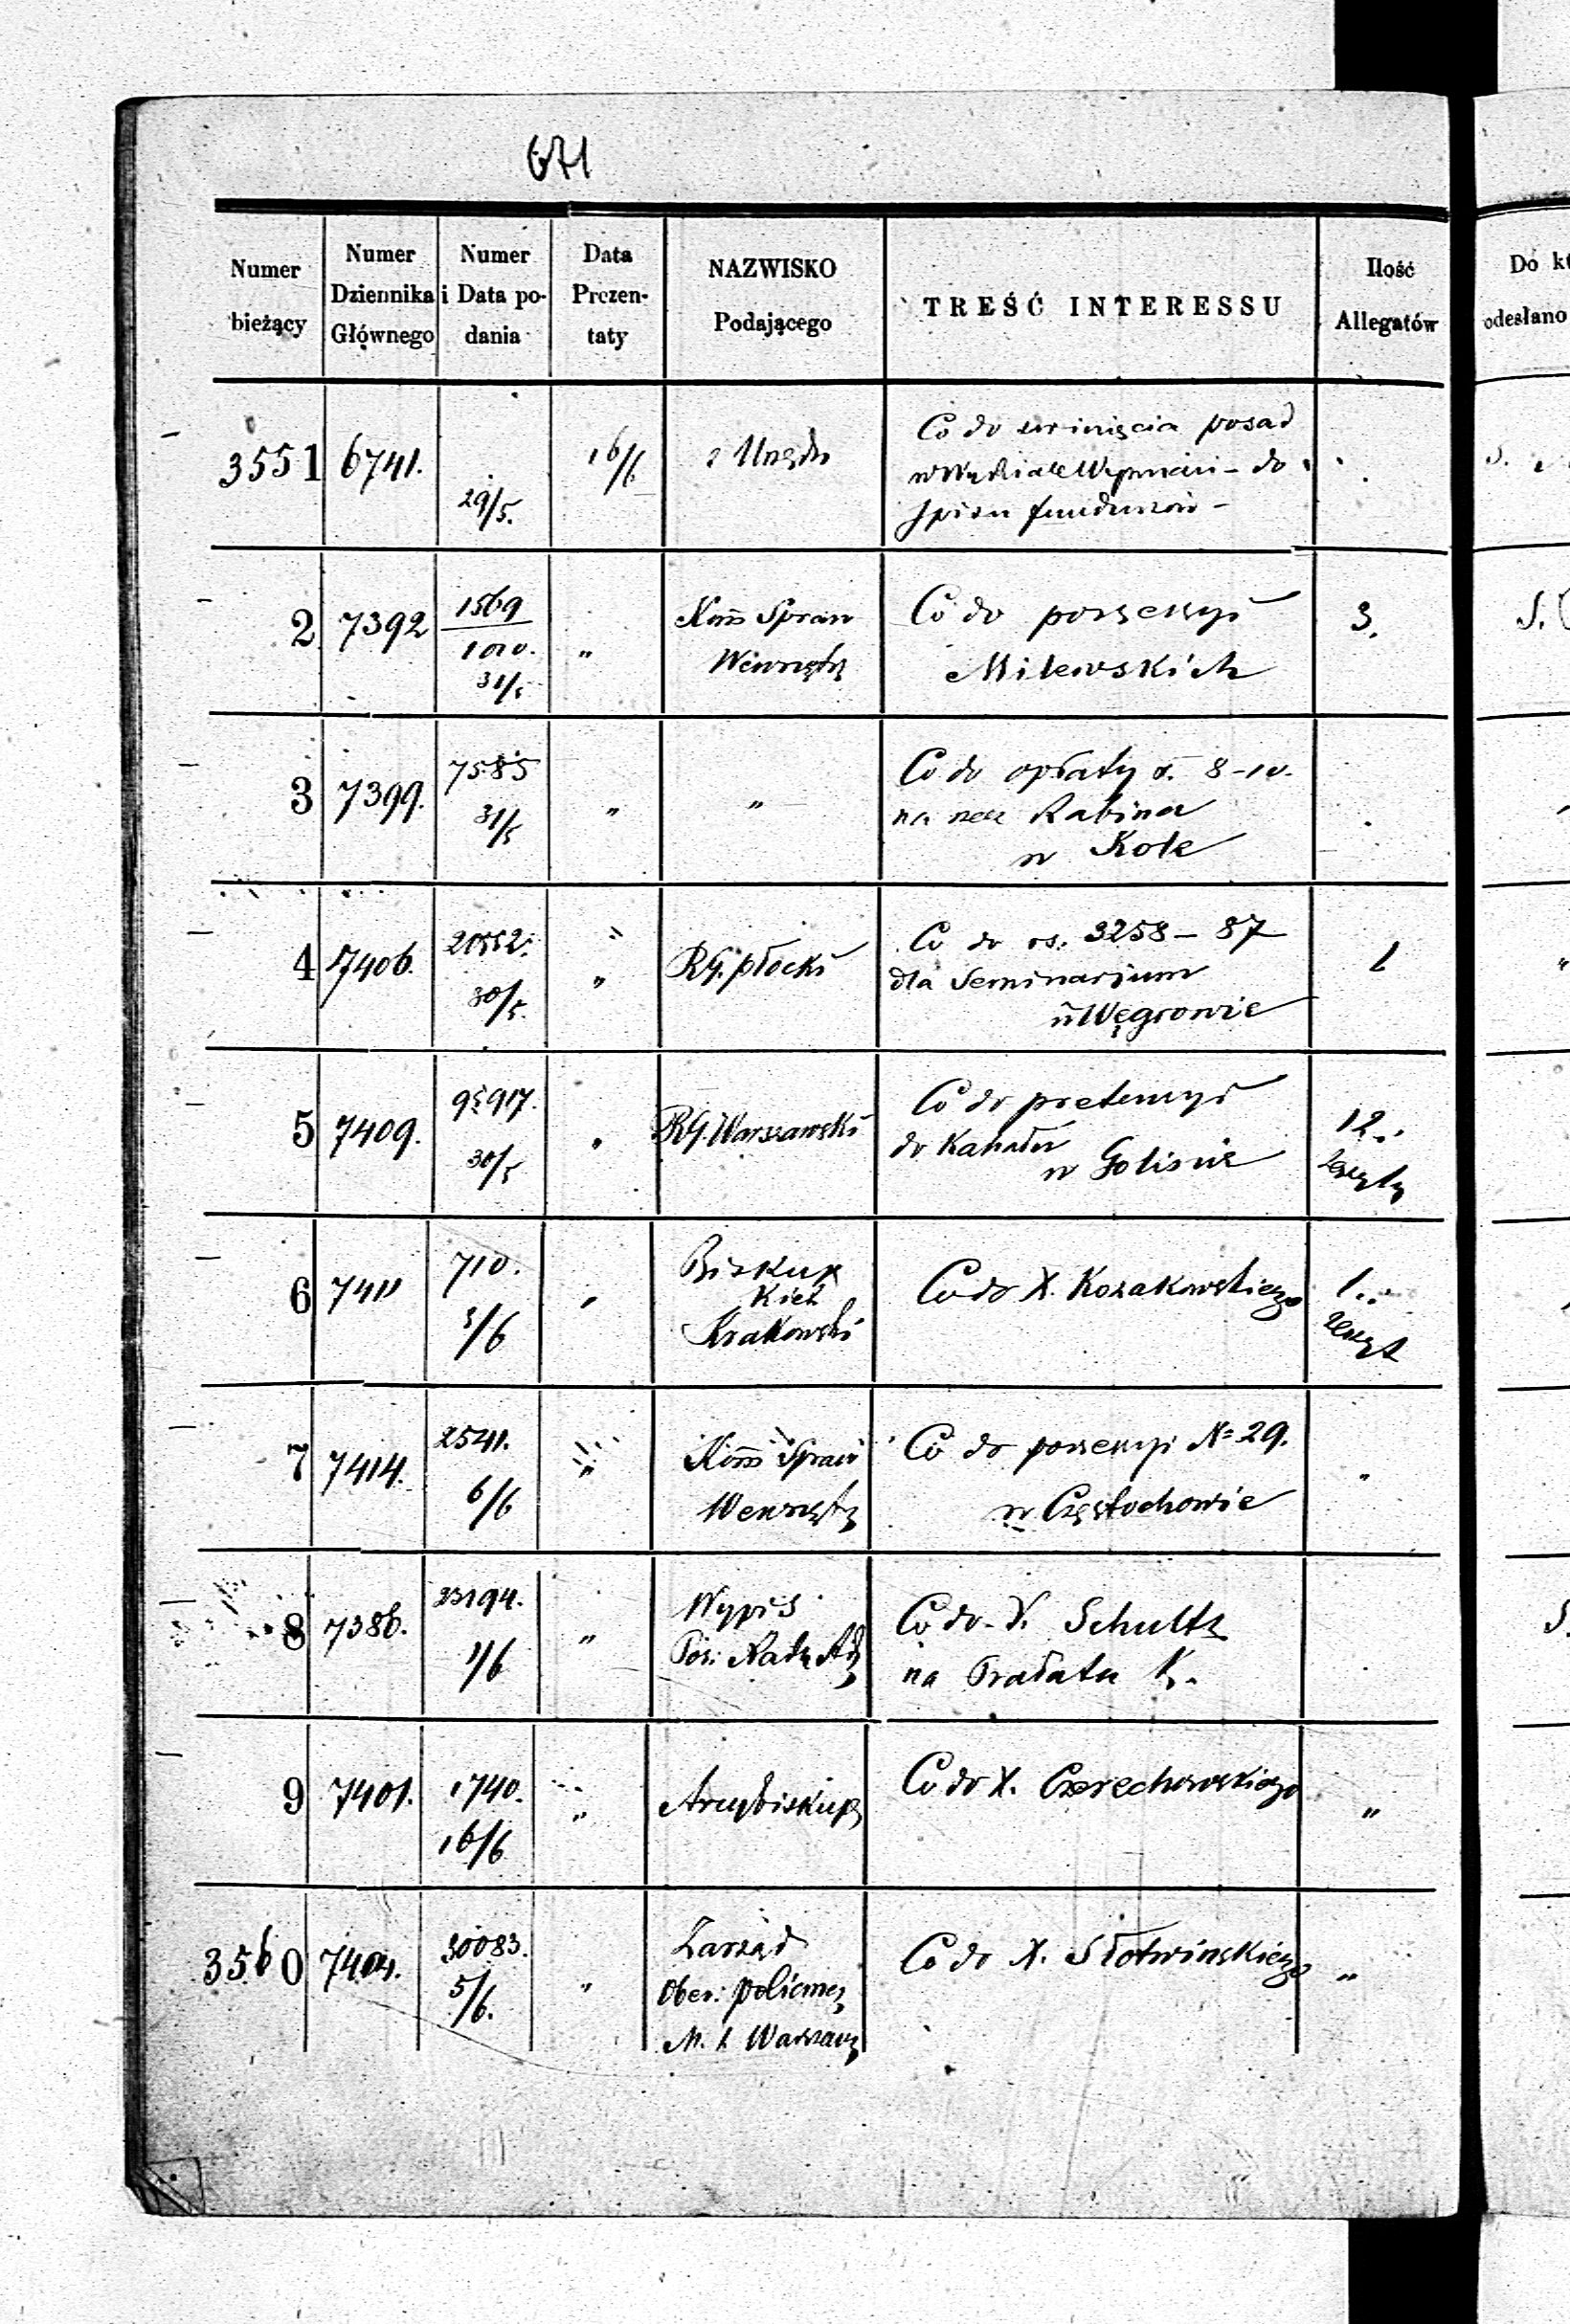 671
Numer bieżący
Numer Dziennika Głównego
Numer i Data podania
Data Prezentaty
NAZWISKO Podającego
TREŚĆ INTERESSU
Ilość Allegatów
Do
odesłano
3551 6741. 29/5. 16/6 z Urzędu
Co do posad
do
spisu funduszów -
2 7392 1569 31/5 " Kom Spraw
Wewnętrz
Co do possessyi
Milewskich
3.
3 7399. 7585 31/5 " "
Co do opłaty r. 8-10.
na Rabina
w Kole
4 7406. 30/5. " RG. płocki
Co do rs. 3258 - 87
dla Seminarjum
w Węgrowie
1
5 7409. 30/5 " RG. Warszawski
Co do pretensyi
do Kahału
w
12..
zeszyty
6 7411 710. 3/6 " Biskup
Kiel
Krakowski
Co do X. Kozakowskiego
1..
zeszyt
7 7414. 2541. 6/6 " Kom Spraw
Wewnętrz
Co do possessyi No 29.
w Częstochowie
"
8 7386. 23194. 1/6 " Wypis
Pos: Rady Adm
Co do X. Schultz
na Prałata K.
9 7401. 1740. 16/6 " Arcybiskup
Co do X. Czerechowskiego
"
3560 7404. 30083. 5/6. " Zarząd
Ober: policmej
M. S. Warszawy
Co do X. Słotwinskiego
"